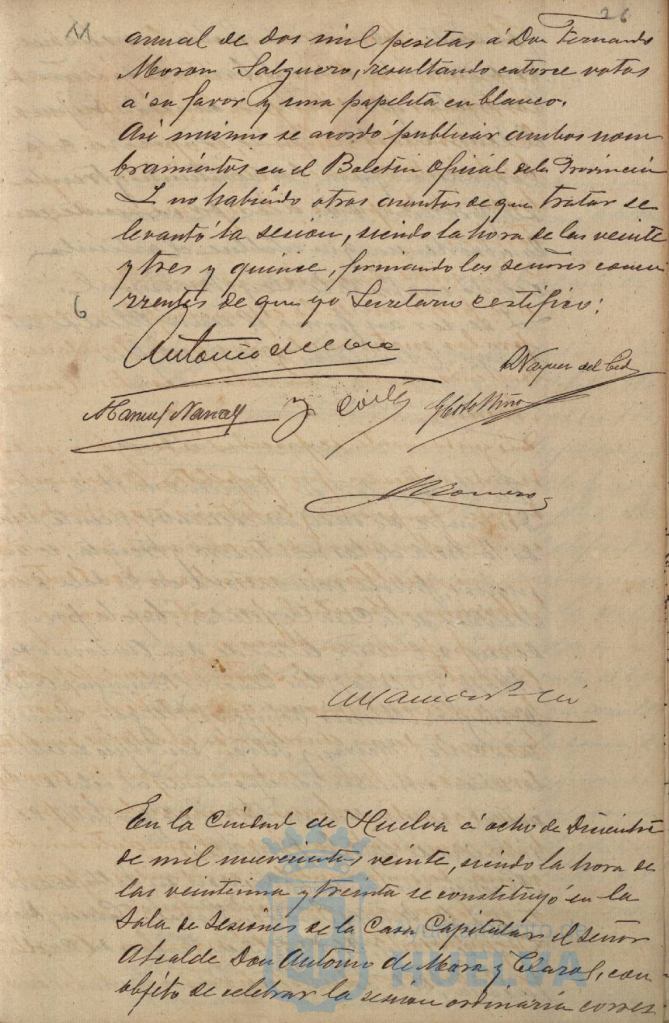 26
anual de dos mil pesetas á Don Fernando
Moron Salguero, resultando catorce votos
á su favor y una papeleta en blanco.
Asi mismo se acordó publicar ambos nom
bramientos en el Boletin Oficial de la Provincia
Y no habiendo otros asuntos de que tratar se
levantó la sesion, siendo la hora de las veinte
y tres y quince, firmando los señores concu
rrentes de que yo Secretario certifico:
6
Antonio de Mora
Vazquez del Cid
Manuel Narvaez y Cortés
Romero
En la Ciudad de Huelva á ocho de Diciembre
de mil novecientos veinte, siendo la hora de
las veintiuna y treinta se constituyó en la
Sala de Sesiones de la Casa Capitular el señor
Alcalde Don Antonio de Mora y Claros, con
objeto de celebrar la sesion ordinaria corres
HUELVA